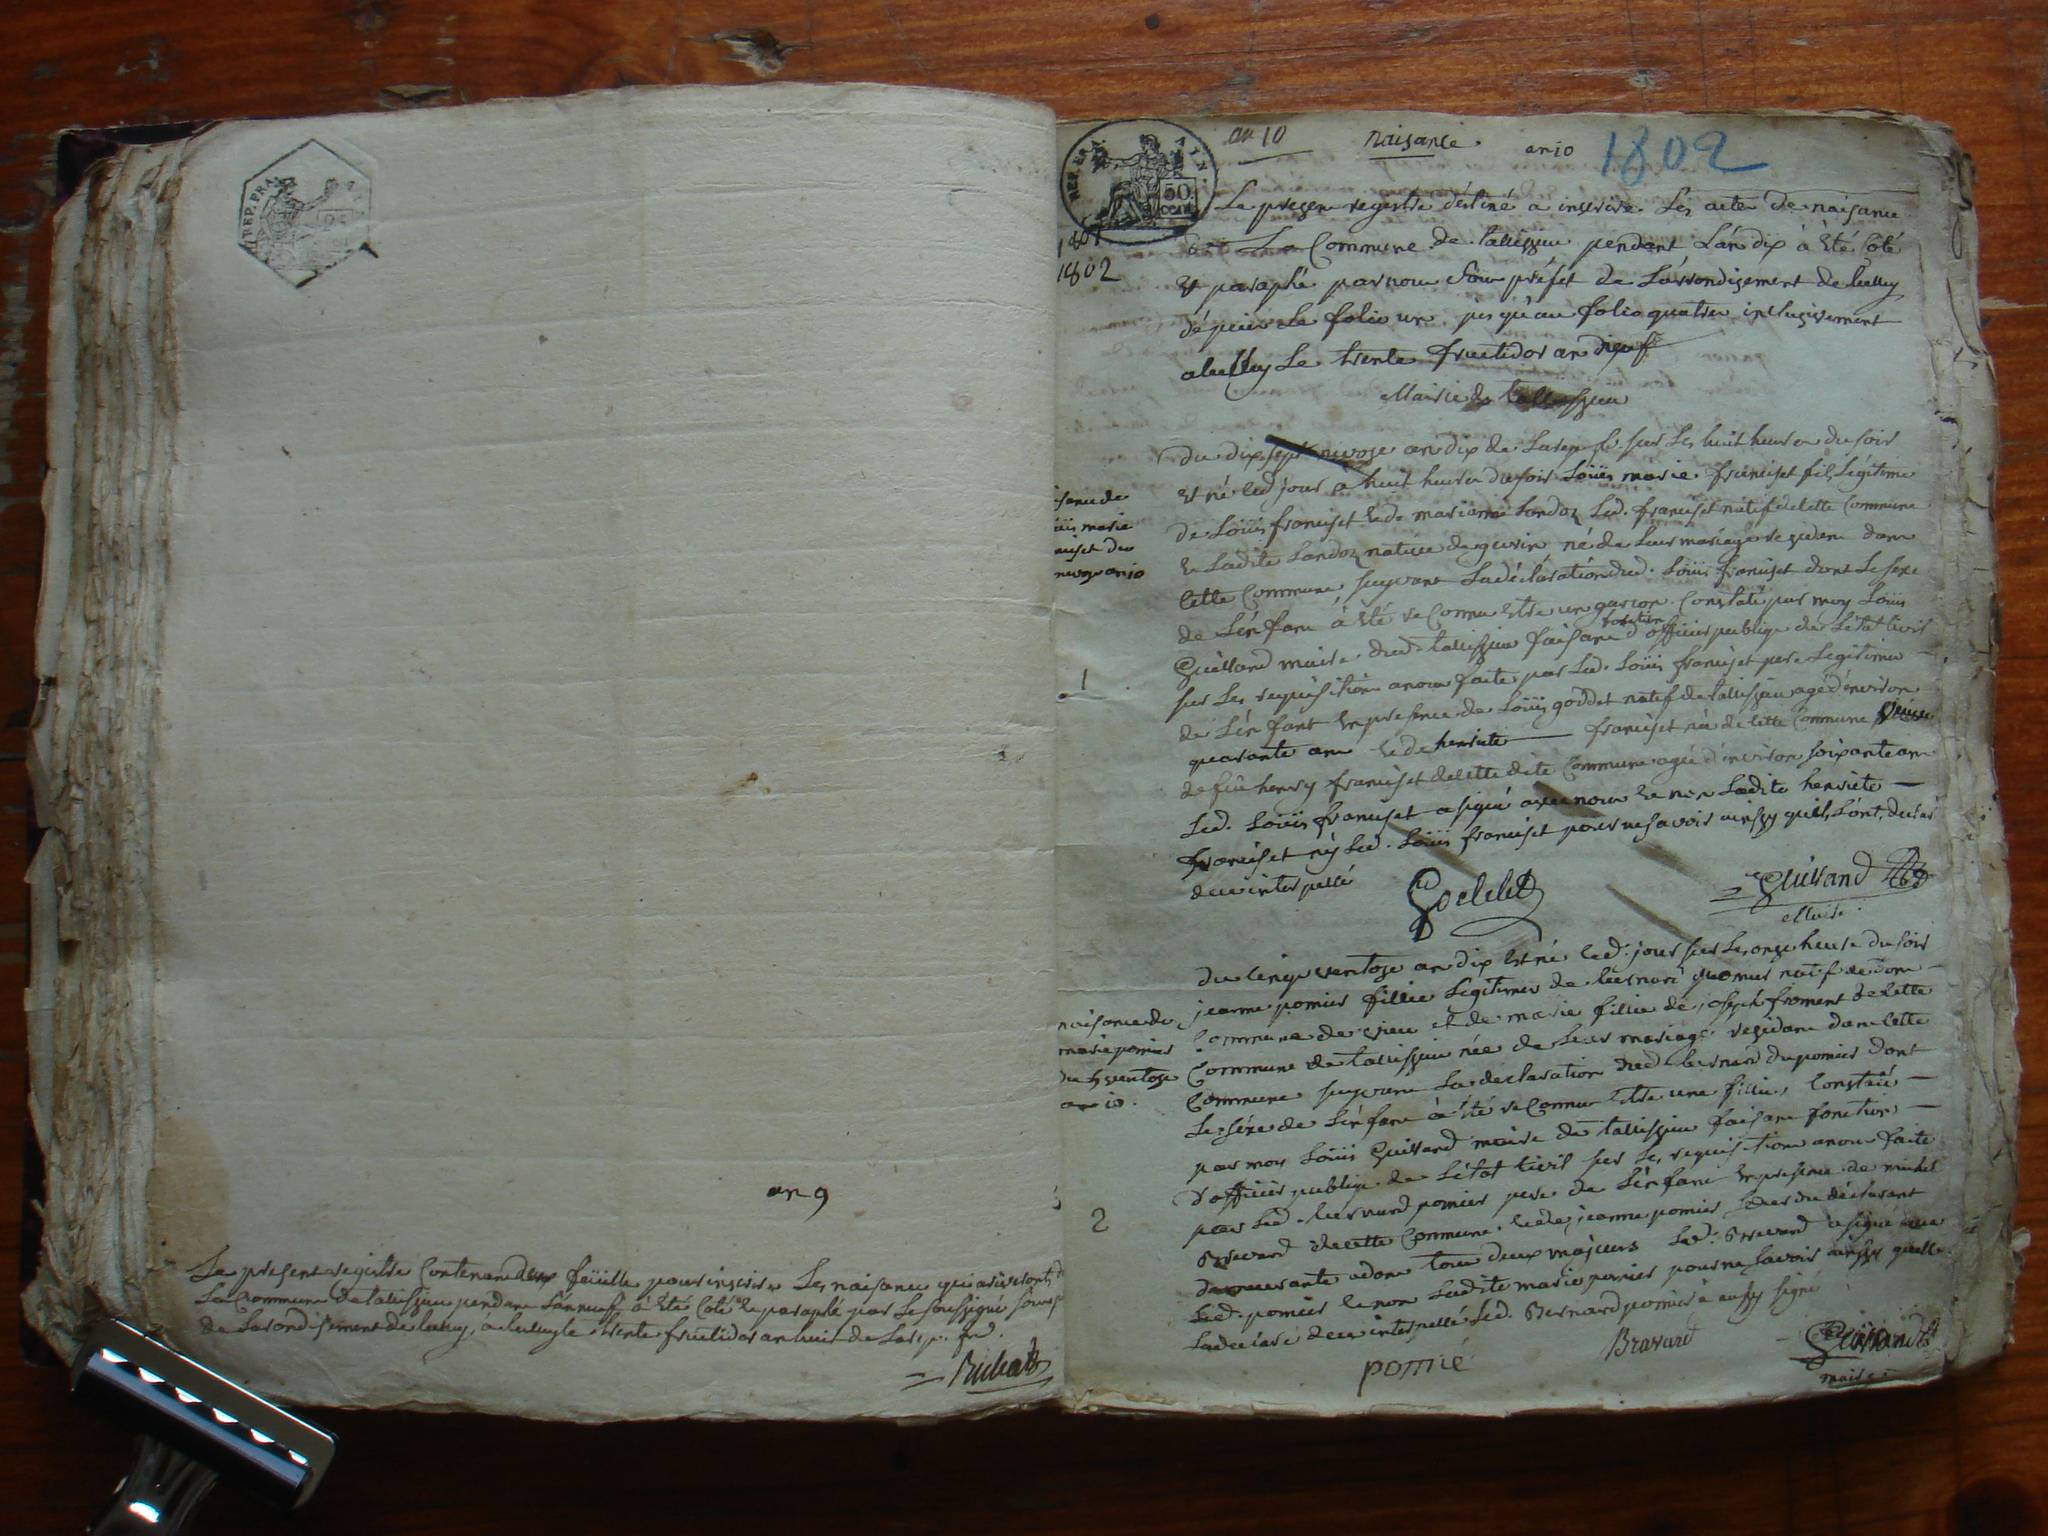 REP. FRA.
25
an 9
Le present registre Contenant deux feuille pour inscrire Les naisance qui ariveront d
La Commune de talissieu pendant L'an neuf a été Coté et paraphé par Le soussigné Sous p
de Larondisement de belley, a belley le trente fructidor an huit de La rep. fr.
REP. FRA. AIN.
50
CENT
an 10 naisance. an 10 1802
1801
1802
Le presen regestre déstiné a inscrire Les acte de naisance
La Commune de talissieu pendant L'an dix à été Coté
et paraphé par nou Sous préfet de L'arrondisement de belley
dépuis Le folio un jusqu'au folio quatre inclusivement
a belley Le trente fructidor an neuf
Mairie de tallissieu
Du dix sept nivose an dix de La rep. fr. sur Les huit heure du soir
Est né led jour a huit heure du soir Loüis marie françiset fils Légitime
de Loüis françiset et de mariane Landoz Led. françiset natif de cette Commune
et Ladite Landoz native de né de Leur mariage residant dans
cette Commune, suyvant La déclaration dud. Loüis françiset dont Le sexe
de L'énfant à été reConnu Etre un garçon. Constaté par moy Loüis
Guilland maire dud. talissieu faisant fonction d'officier publique de L'état civil
sur Les requisition a nou faite par Led. Loüis françiset pere Legitime
de L'énfant en presence de Loüis goddet natif de talissieu agé d'environ
quarante an et de henriete françiset née de cette Commune veuve
de feu henry françiset de cette dite Commune agée d'environ soixante an
Led. Loüis françiset a signé avec nou et non Ladite henriete
françiset ny Led. Loüis françiset pour ne savoir ainssy qu'ils L'ont déclaré
de ce interpellé
Guilland
Maire
isance de
üis marie
niset du
nivose an 10
1
Du cinq ventose an dix Est né led. jour sur Les onze heure du soir
jeanne pomier fillie Légitime de bernard pomier natif de
Commune de vieu et de marie fillie de joseph froment de cette
Commune de talissieu née de Leur mariage residant dans cette
Commune suyvant La declaration dud. bernard dupomier dont
Le séxe de L'énfant à été reConnu Etre une fillie, Constaté
par moy Loüis Guilland maire de talissieu faisant fonction
d'officier publique de L'état civil sur Les requisition a nou faite
par Led. bernard pomier pere de L'énfant En presence de michel
Bravard de cette Commune et de jeanne pomier soeur du déclarant
demeurante a don tou deux majeurs Led. Bravard a signé avec
Led. pomier et non Ladite marie pomier pour ne savoir ainssy quelle
La déclaré de ce interpellé Led. Bernard pomier à aussy signé
pomié
Bravard
Guilland
maire
naisance de
marie pomier
du 5 ventose
an 10.
2